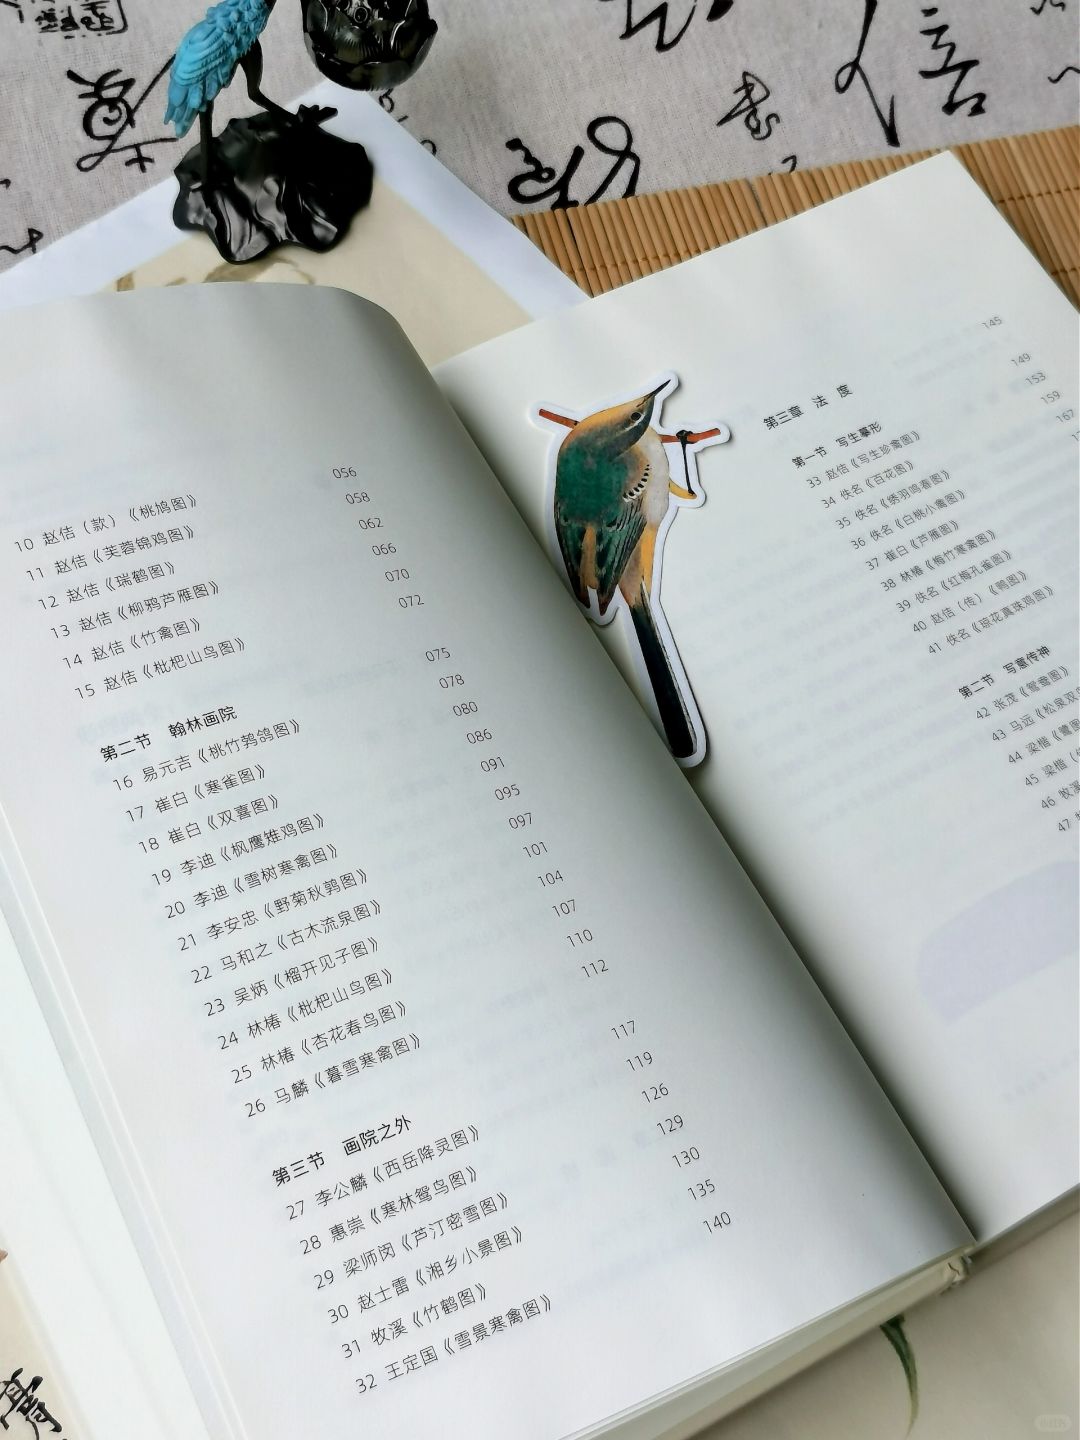 10 赵佶（款）《桃鸠图》 056
11 赵佶《芙蓉锦鸡图》 058
12 赵佶《瑞鹤图》 062
13 赵佶《柳鸦芦雁图》 066
14 赵佶《竹禽图》 070
15 赵佶《枇杷山鸟图》 072
第二节 翰林画院 075
16 易元吉《桃竹鹁鸽图》 078
17 崔白《寒雀图》 080
18 崔白《双喜图》 086
19 李迪《枫鹰雉鸡图》 091
20 李迪《雪树寒禽图》 095
21 李安忠《野菊秋鹑图》 097
22 马和之《古木流泉图》 101
23 吴炳《榴开见子图》 104
24 林椿《枇杷山鸟图》 107
25 林椿《杏花春鸟图》 110
26 马麟《暮雪寒禽图》 112
第三节 画院之外 117
27 李公麟《西岳降灵图》 119
28 惠崇《寒林鸳鸟图》 126
29 梁师闵《芦汀密雪图》 129
30 赵士雷《湘乡小景图》 130
31 牧溪《竹鹤图》 135
32 王定国《雪景寒禽图》 140
第三章 法 度 145
第一节 写生摹形 149
33 赵佶《写生珍禽图》 153
34 佚名《百花图》 159
35 佚名《绣羽鸣春图》 167
36 佚名《白桃小禽图》
37 崔白《芦雁图》
38 林椿《梅竹寒禽图》
39 佚名《红梅孔雀图》
40 赵佶（传）《鸭图》
41 佚名《琼花真珠鸡图》
第二节 写意传神
42 张茂《鸳鸯图》
43 马远《松泉双
44 梁楷《鹭图
45 梁楷（
46 牧溪
47